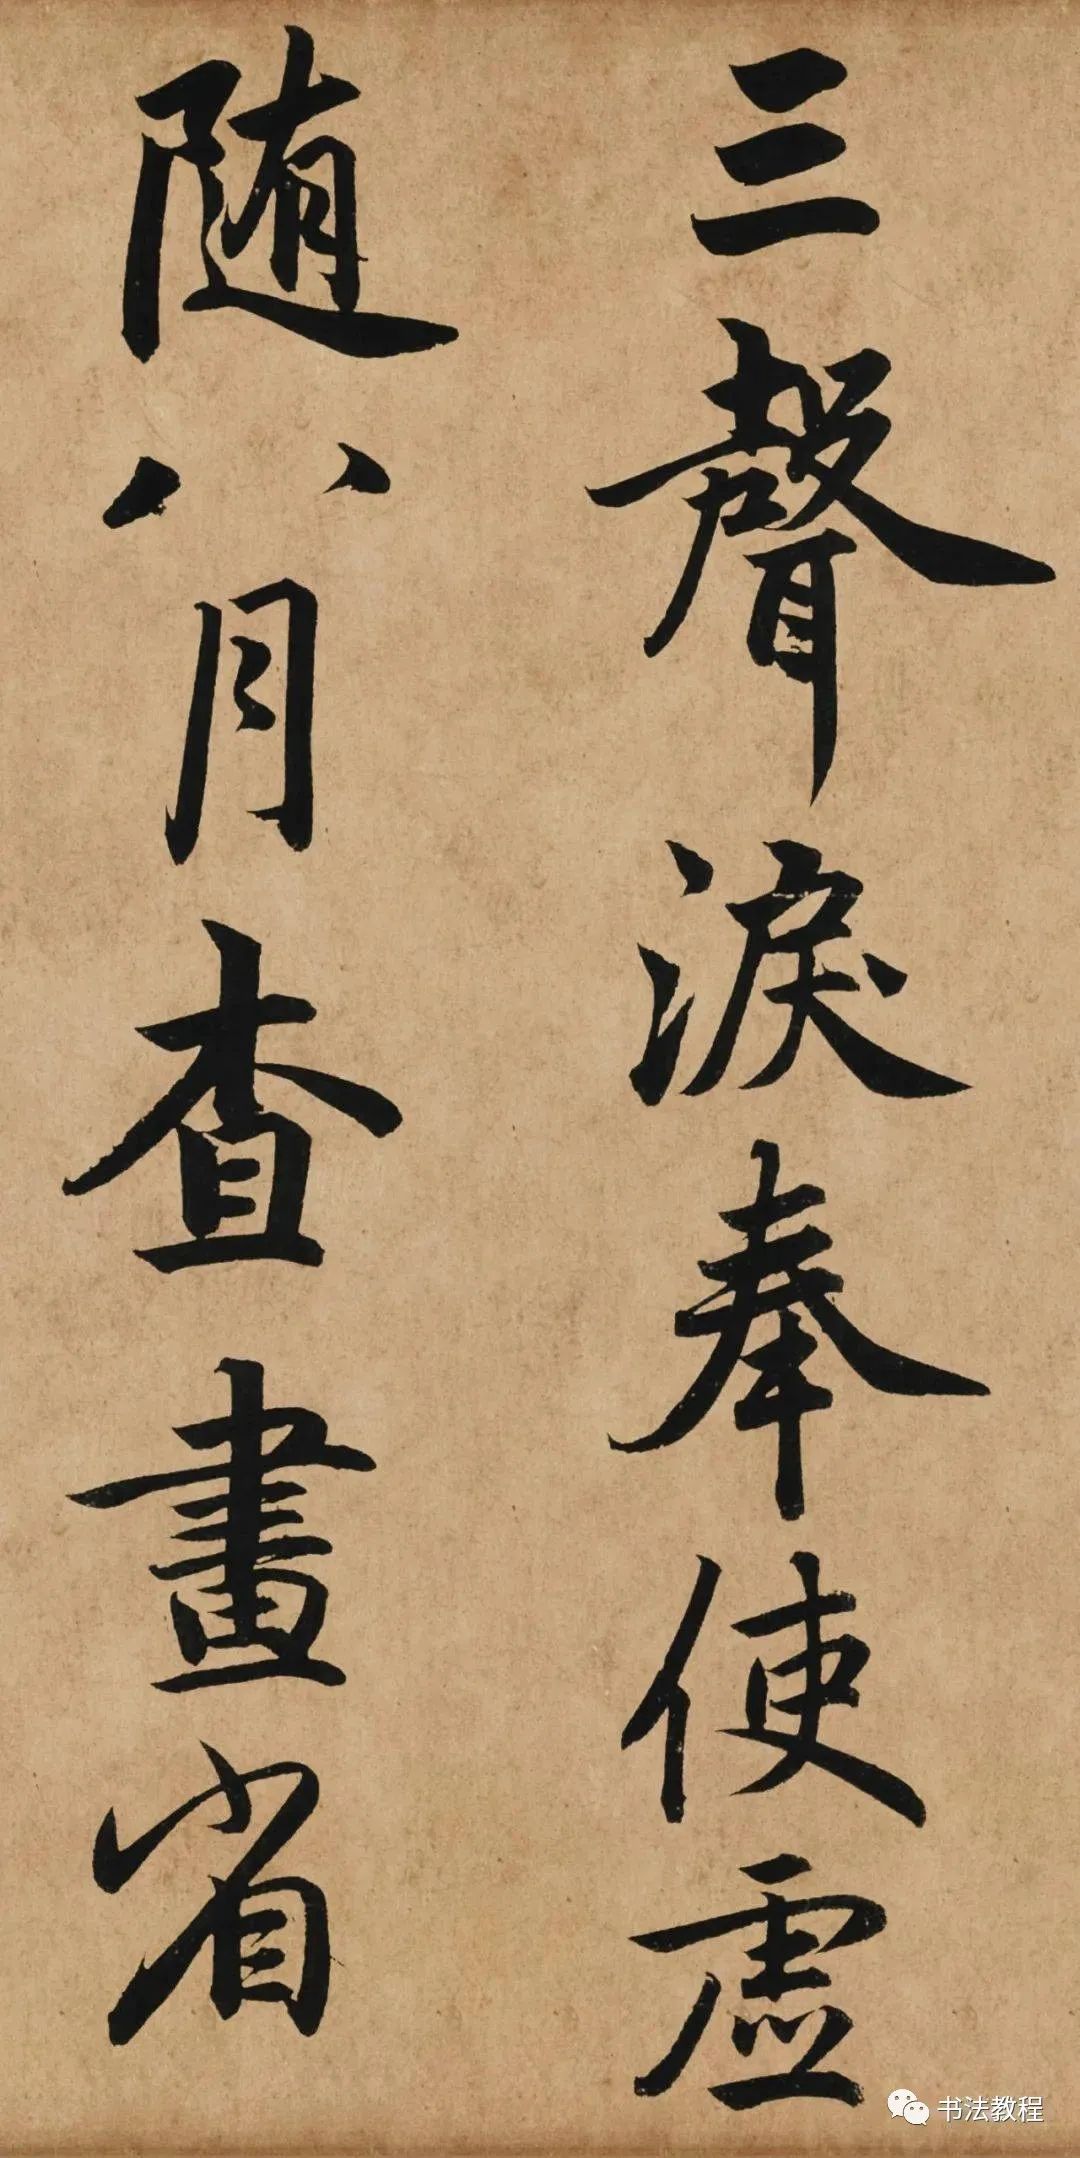 三聲淚奉使虛
随八月查畫省
书法教程